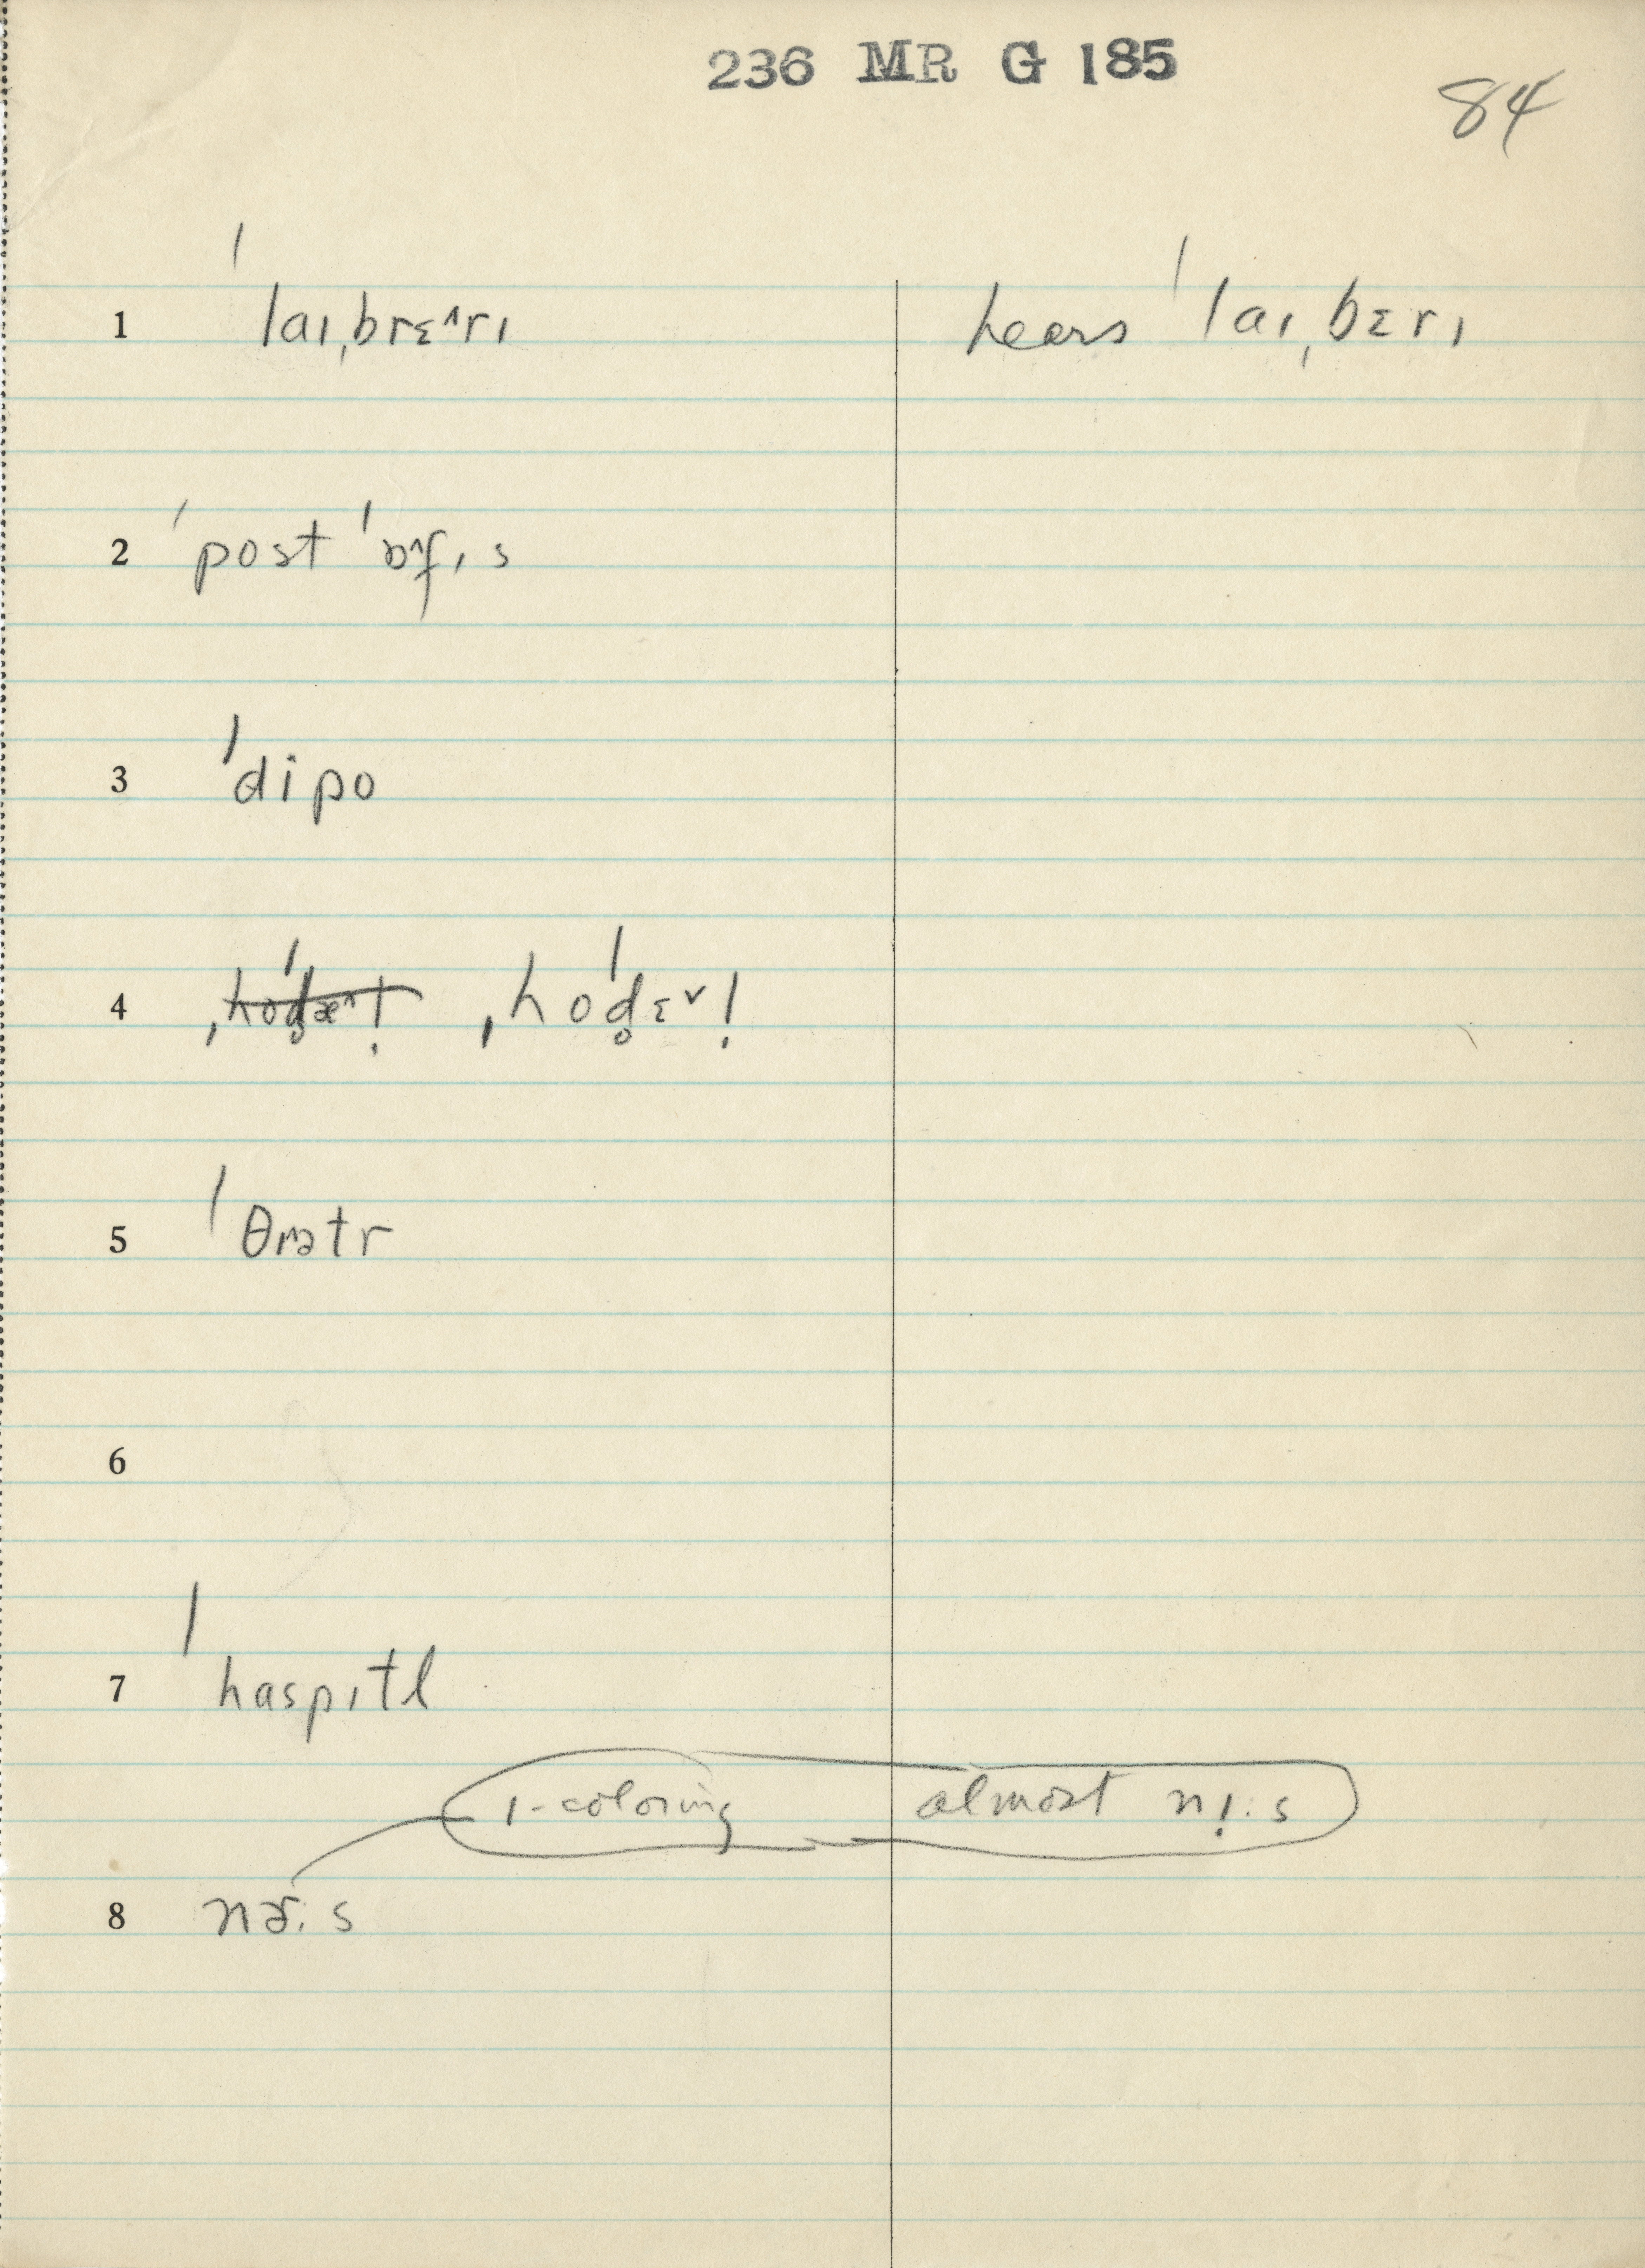 236 MR G 185
84
1 ˈlaɪˌbrɛ^rɪ hears ˈlaɪˌbɛrɪ
2 ˈpost ˈɒ^fɪs
3 ˈdipo
4 ˌhoˈd̥ɛˇl̩
5 ˈθɪ^ətr
6
7 ˈhaspɪtl
ɪ-coloring almost nɪ̣:s
8 nɚ:s